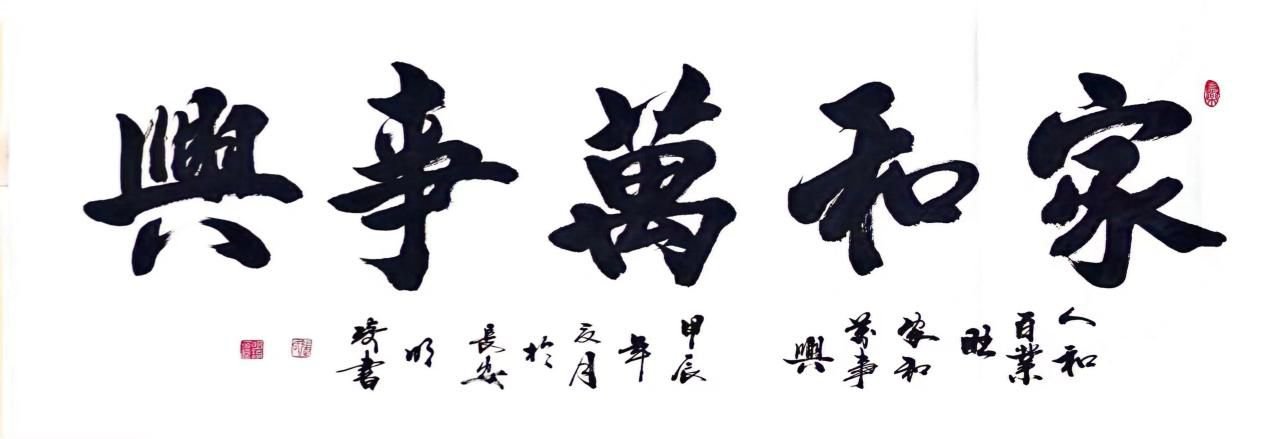 家和萬事興
人和
百業
旺
家和
萬事
興
甲辰
年
夏月
於
長安
明
琦書